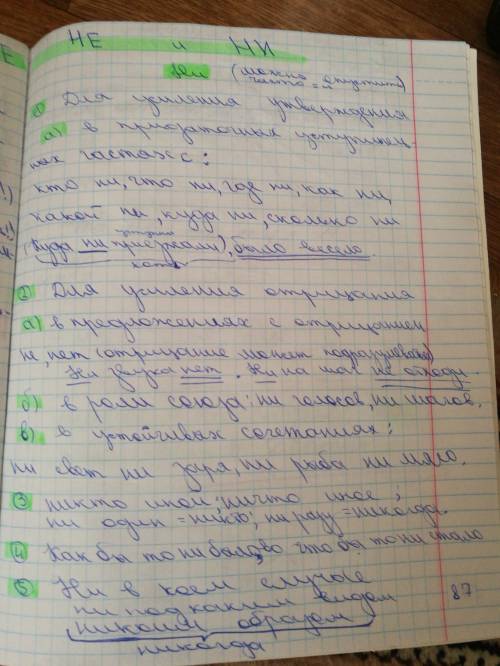 НЕ и НИ
Ни (можно опустить)
часто = и
① Для усиления утверждения
а) в придаточных уступитель
ных частях с:
кто ни, что ни, где ни, как ни,
какой ни, куда ни, сколько ни
(Куда ни приезжали), было весело.
② Для усиления отрицания
а) в предложениях с отрицанием
не, нет (отрицание может подразумеваться)
Ни звука нет. Ни на шаг не отходи.
б) в роли союза: ни голосов, ни шагов.
в) в устойчивых сочетаниях:
ни свет ни заря, ни рыба ни мясо.
③ никто иной; ничто иное;
ни один = никто; ни разу = никогда.
④ Как бы то ни было, что бы то ни стало
⑤ Ни в коем случае
ни под каким видом
никоим образом
никогда
87